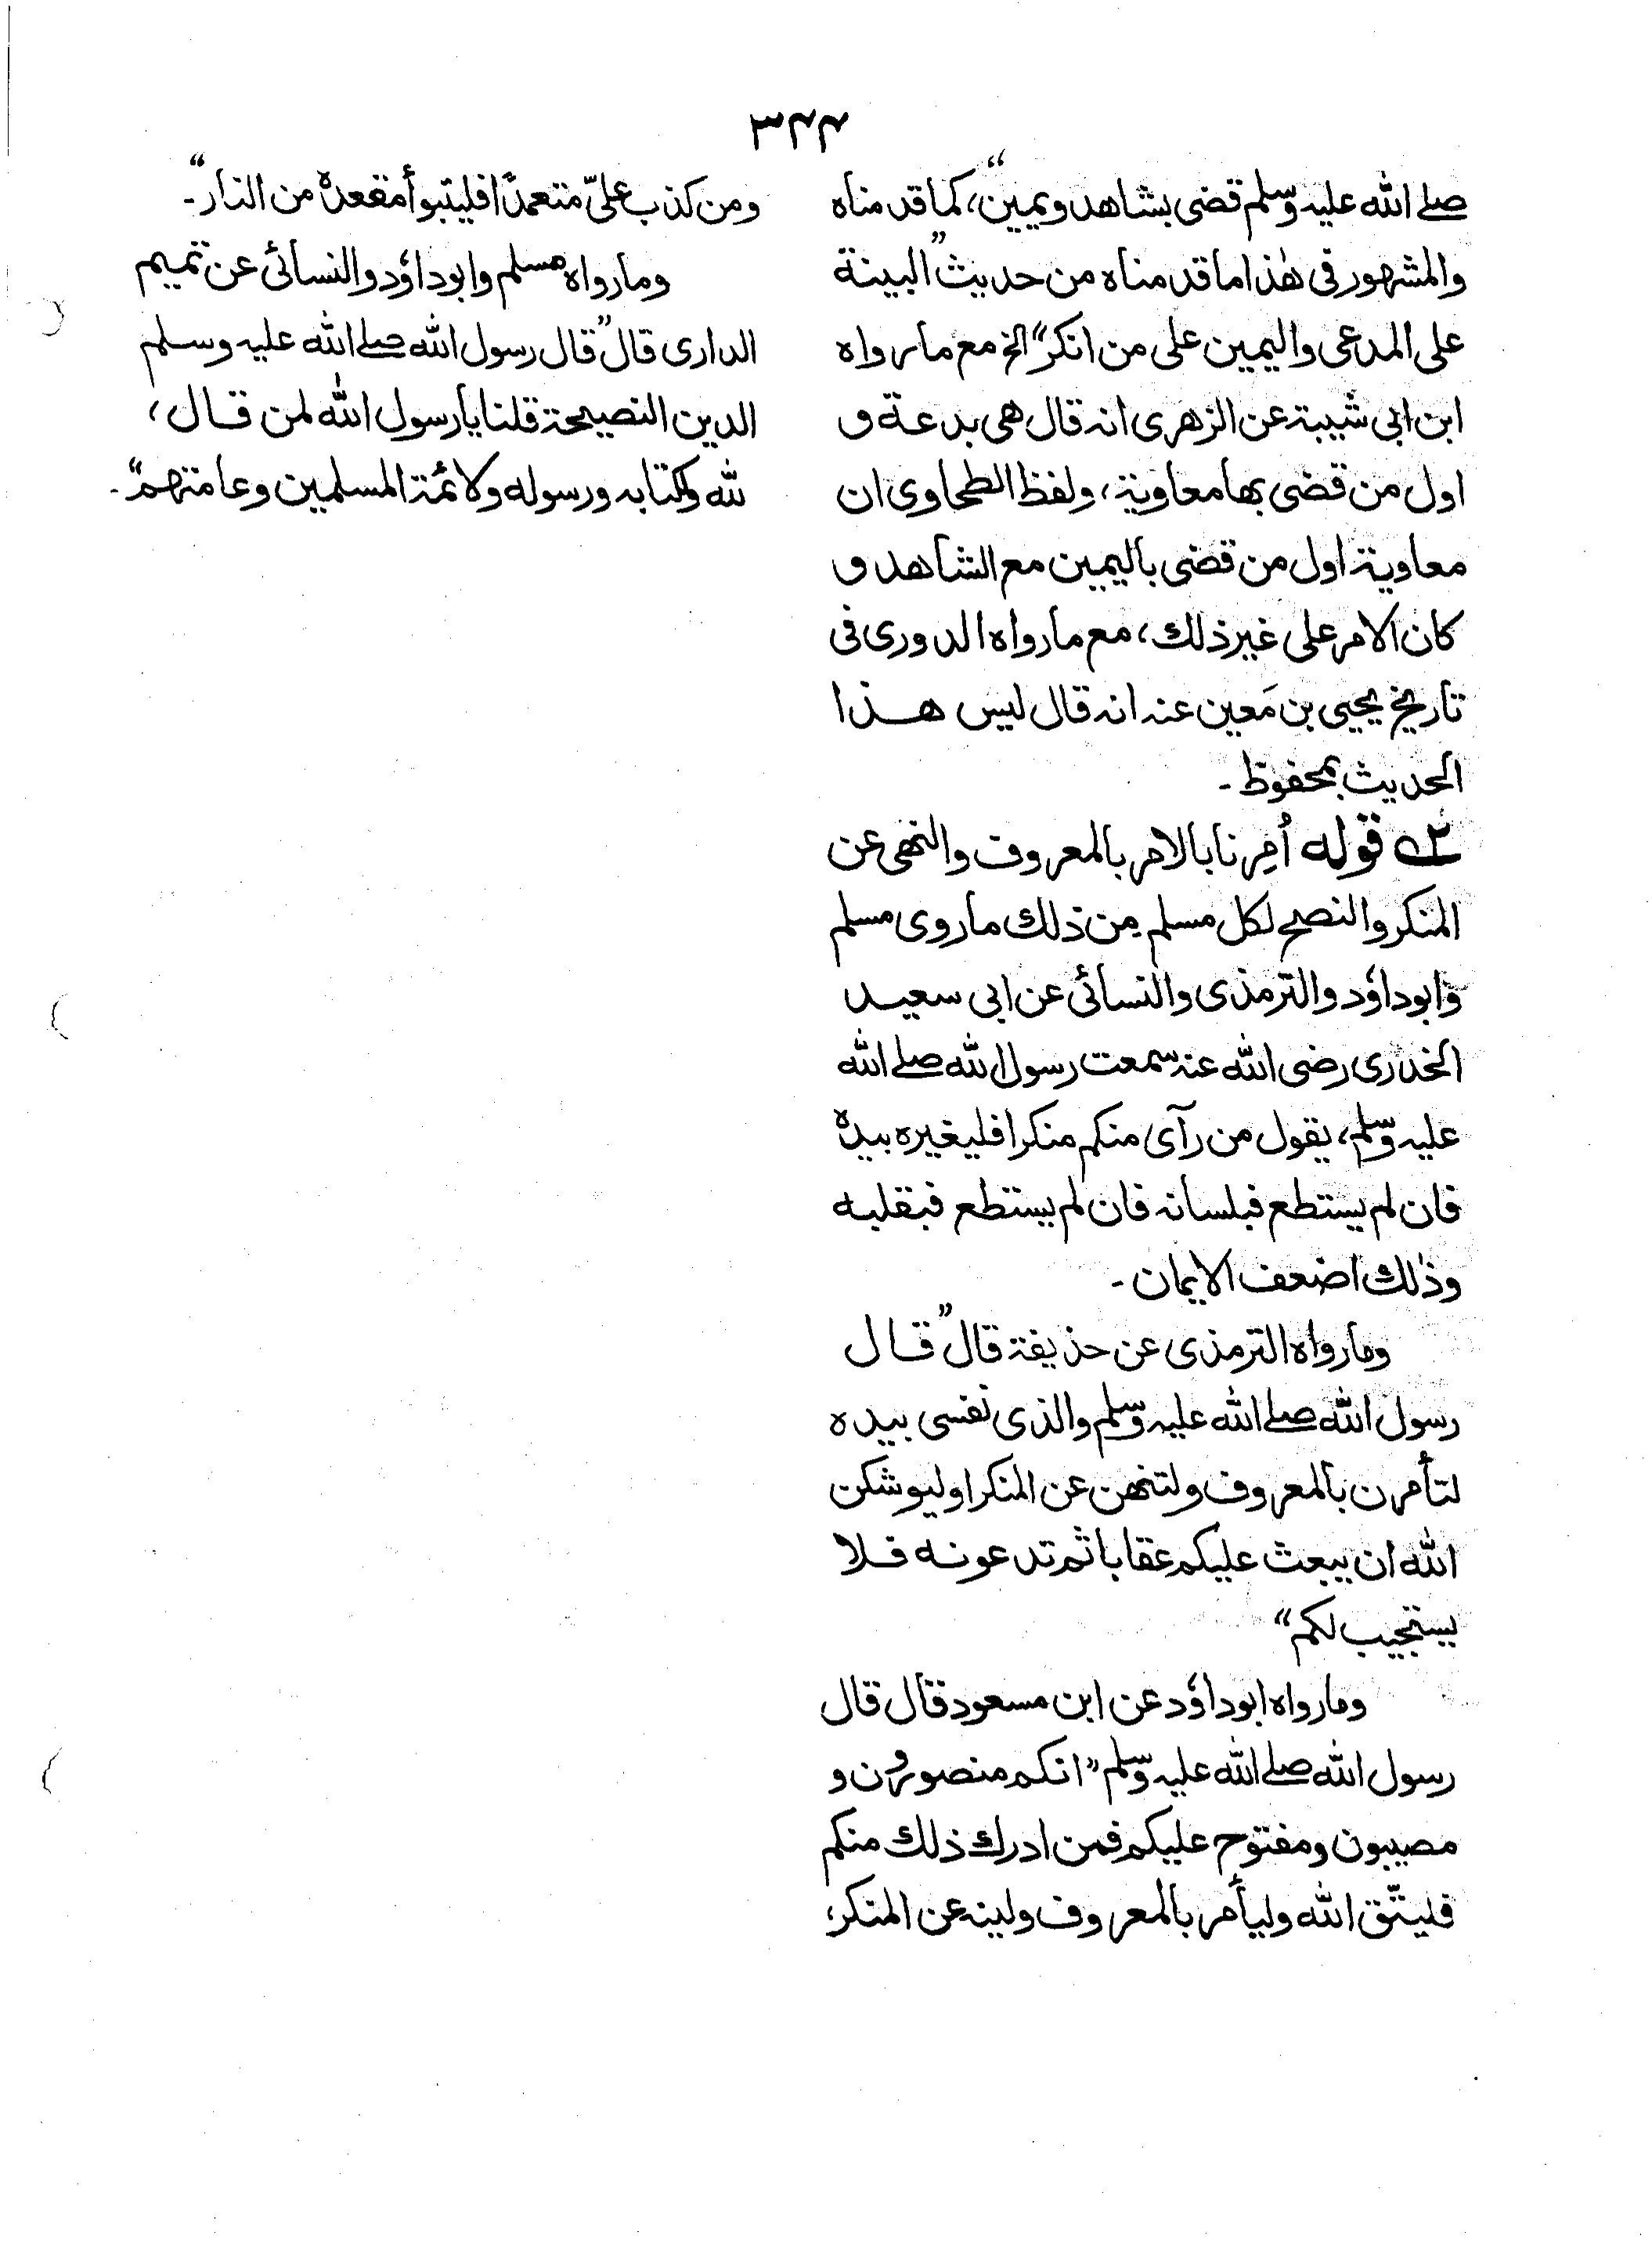 ۳۴۴
صلے الله علیہ وسلم قضی بشاهد ویمین“، کما قدمناه
والمشهور فی هٰذا ما قدمناه من حدیث ”البینة
علی المدعی والیمین علی من انکر“ الخ مع ما رواه
ابن ابی شیبة عن الزهری انہ قال هی بدعة و
اول من قضی بها معاویة، ولفظ الطحاوی ان
معاویة اول من قضی بالیمین مع الشاهد و
کان الامر علی غیر ذلك، مع ما رواه الدوری فی
تاریخ یحیی بن مَعین عنہ انہ قال لیس هذا
الحدیث بمحفوظ۔
۲؎ قوله اُمِرنا بالامر بالمعروف والنهی عن
المنکر والنصح لکل مسلم من ذلك ما روی مسلم
وابوداؤد والترمذی والنسائی عن ابی سعید
الخدری رضی الله عنہ سمعت رسول الله صلے الله
علیہ وسلم، یقول من رآی منکم منکرا فلیغیره بیده
فان لم یستطع فبلسانہ فان لم یستطع فبقلبه
وذٰلك اضعف الایمان۔
وما رواه الترمذی عن حذیفة قال ”قال
رسول الله صلے الله علیہ وسلم والذی نفسی بیده
لتأمرن بالمعروف ولتنهن عن المنکر او لیوشکن
الله ان یبعث علیکم عقابا ثم تدعونه فلا
یستجیب لکم“
وما رواه ابوداؤد عن ابن مسعود قال قال
رسول الله صلے الله علیہ وسلم ”انکم منصورون و
مصیبون ومفتوح علیکم فمن ادرك ذلك منکم
فلیتّق الله ولیأمر بالمعروف ولینه عن المنکر،
ومن کذب علیّ متعمدًا فلیتبوأ مقعده من النار“۔
وما رواه مسلم وابوداؤد والنسائی عن تمیم
الداری قال ”قال رسول الله صلے الله علیہ وسلم
الدین النصیحة قلنا یا رسول الله لمن قال،
لله ولکتابہ ورسوله ولائمة المسلمین وعامتهم“۔